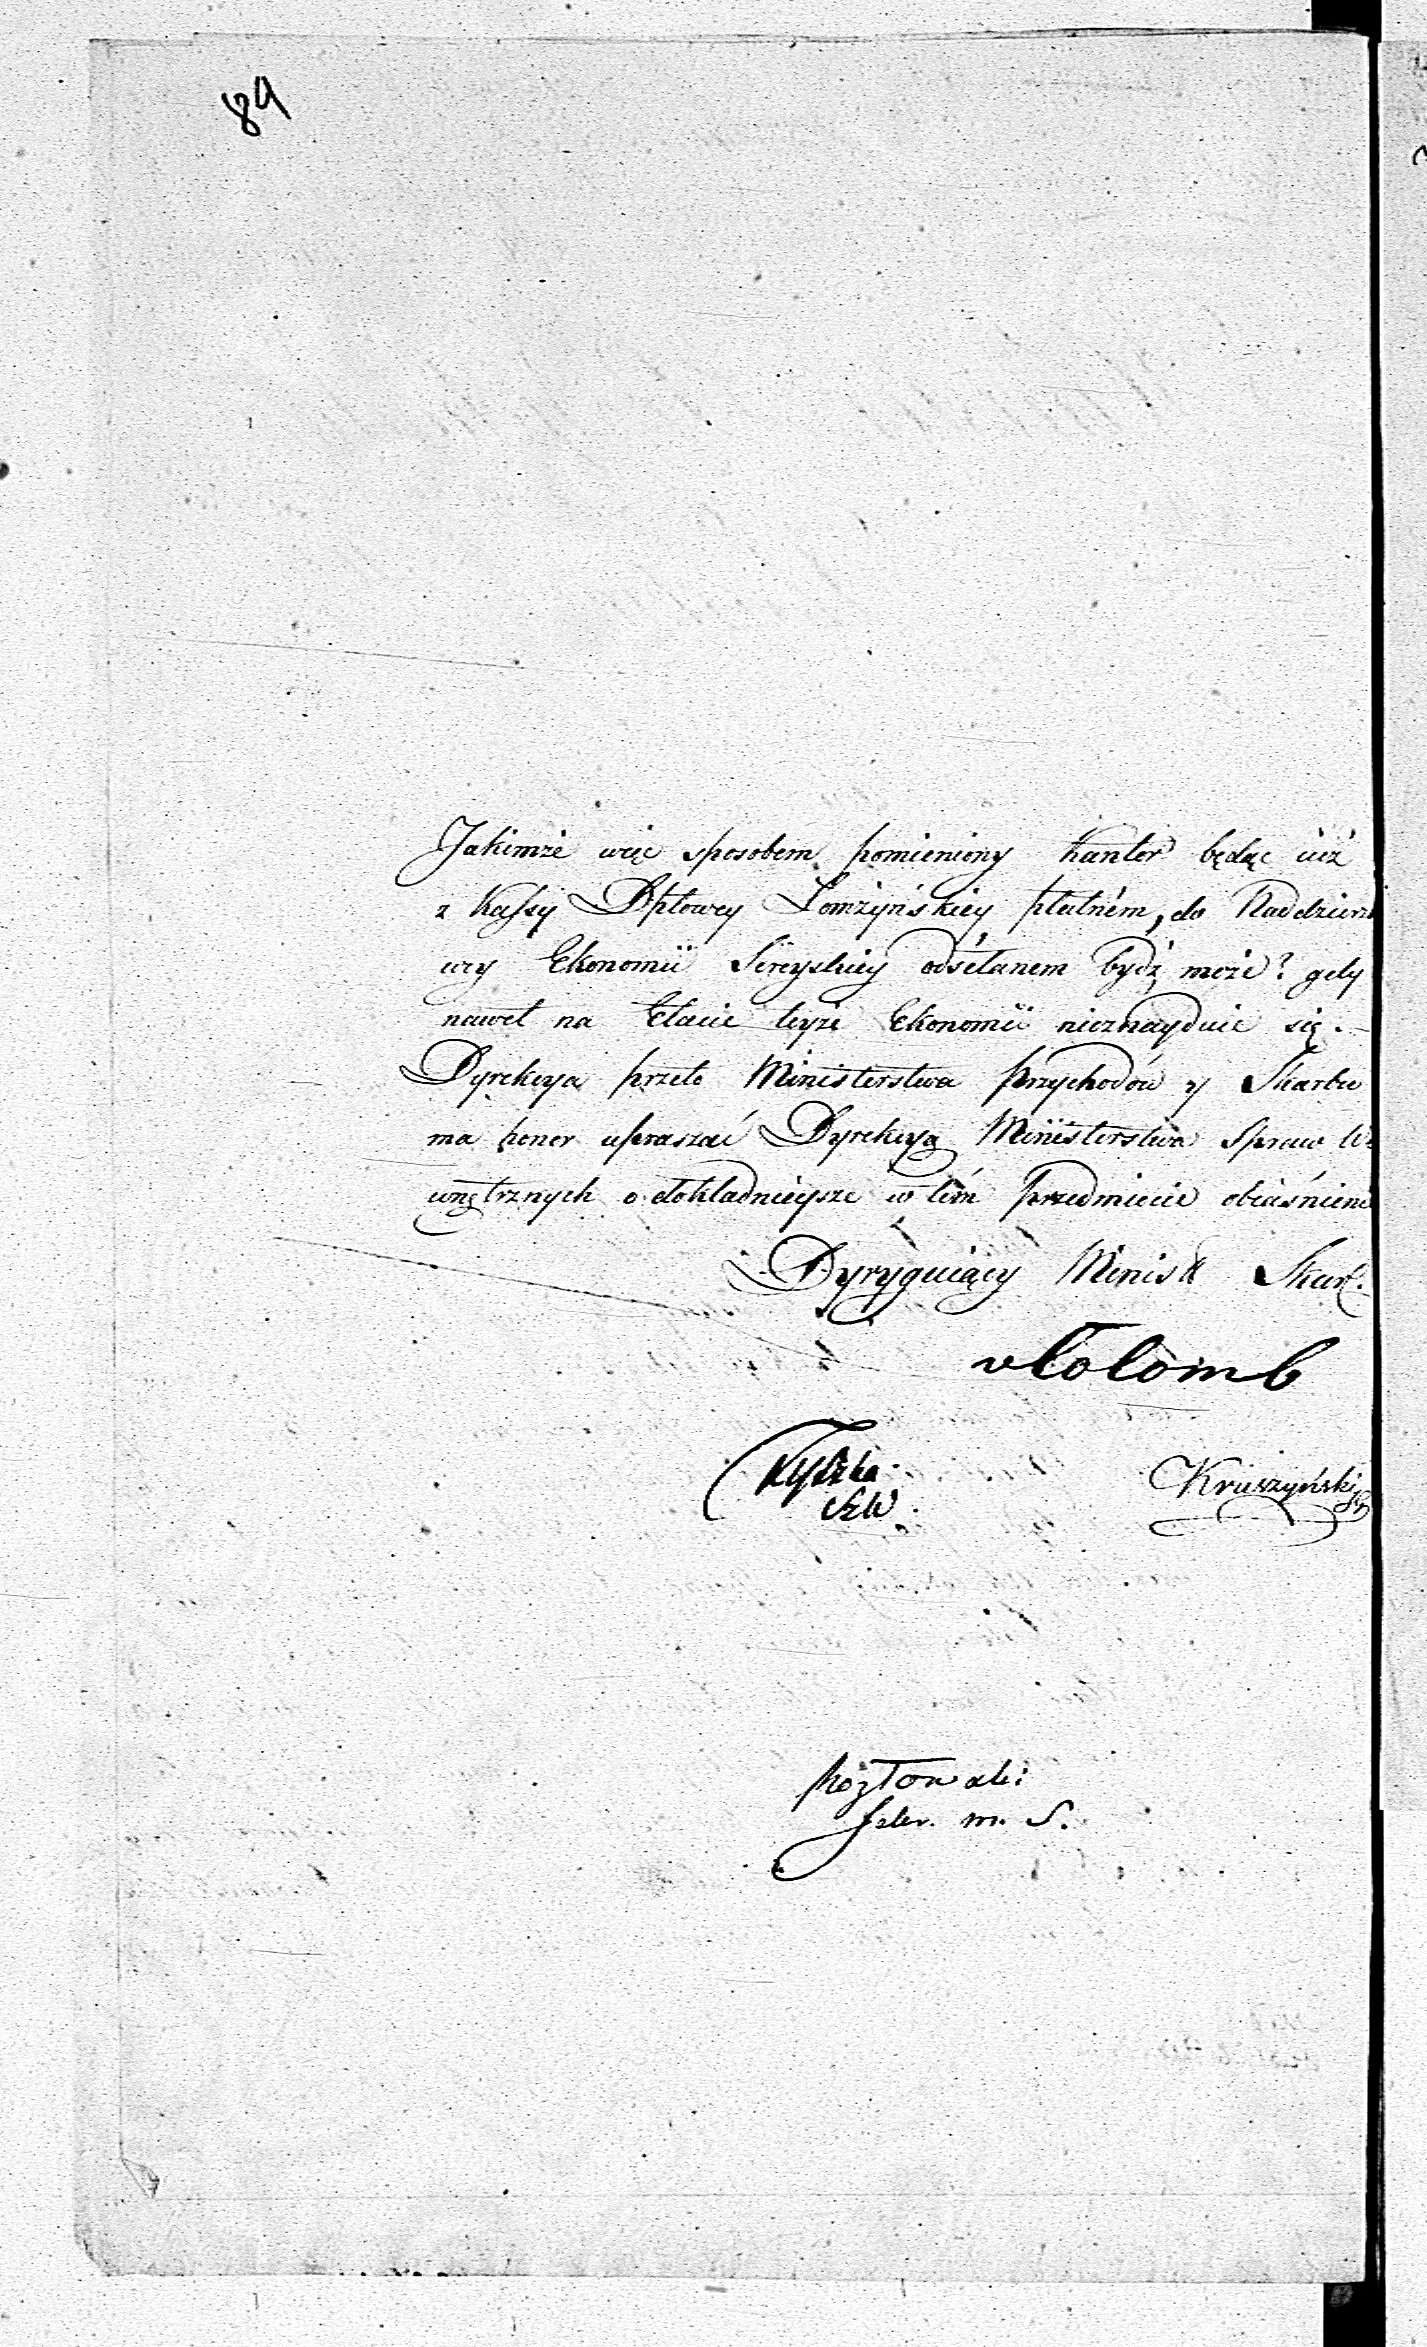 89
Jakimże więc sposobem pomieniony kantor będąc iuż
z Kassy Dptowey Łomżyńskiey płatném, do Naddzierża
wcy Ekonomii Sereyskiey odsełanem bydź może? gdy
nawet na Etacie teyże Ekonomii nieznayduie się.
Dyrekcya przeto Ministerstwa Przychodów y Skarbu
ma honor upraszać Dyrekcyą Ministerstwa Spraw We
wnętrznych o dokładnieysze w tém Przedmiocie obiaśnieni
Dyryguiący Minist Skar.
Kruszyński
Kozłowski
m. S.